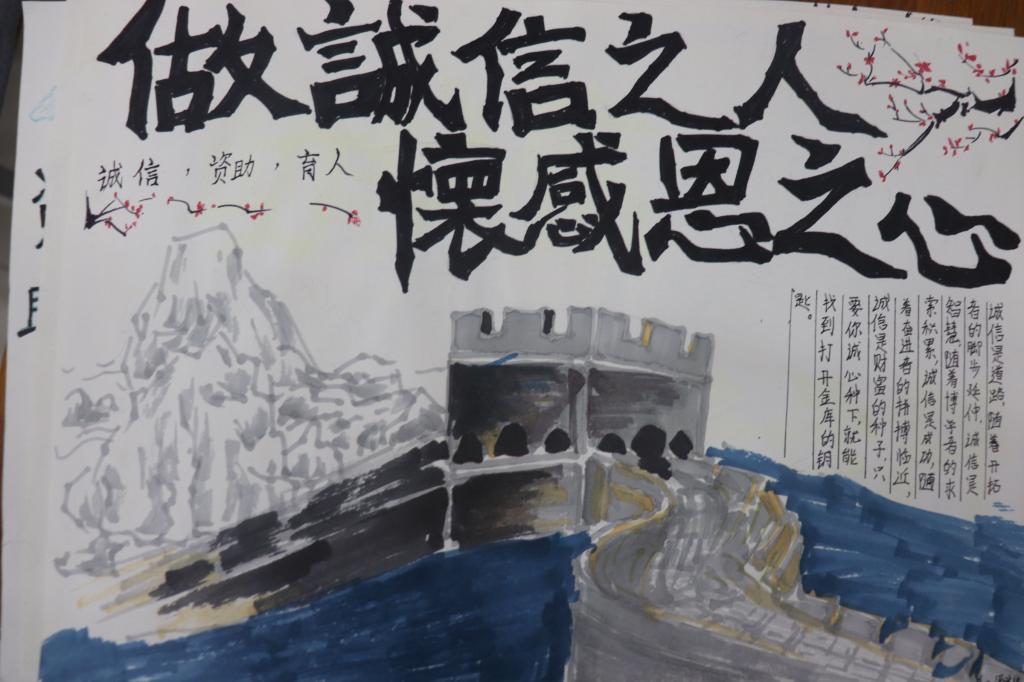 做誠信之人
懷感恩之心
诚信，资助，育人
诚信是道路，随着开拓
者的脚步延伸，诚信是
智慧，随着博学者的求
索积累，诚信是成功，随
着奋进者的拼搏临近，
诚信是财富的种子，只
要你诚心种下，就能
找到打开金库的钥
匙。